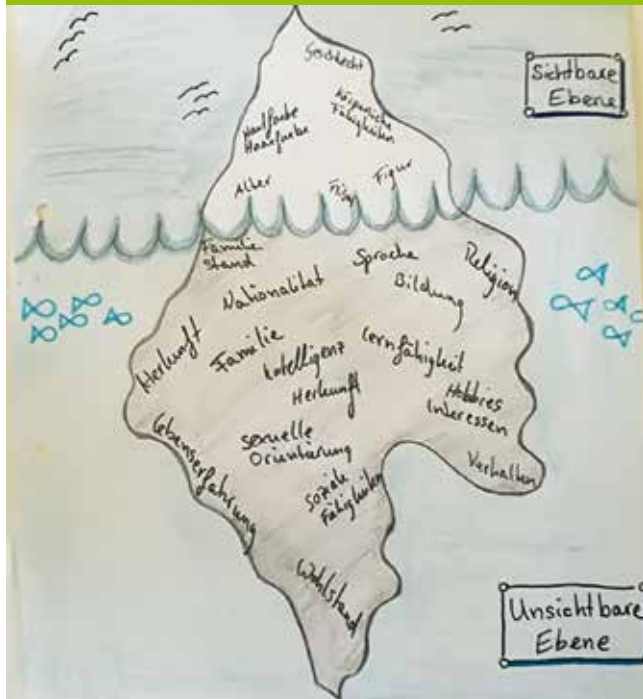 Geschlecht
Sichtbare
Ebene
Hautfarbe
Haarfarbe
körperliche
Fähigkeiten
Alter
Figur
Familie
Stand
Sprache
Religion
Nationalität
Bildung
Herkunft
Familie
Intelligenz
Lernfähigkeit
Herkunft
Hobbies
Interessen
Lebenserfahrung
sexuelle
Orientierung
Verhalten
soziale
Fähigkeiten
Wohlstand
Unsichtbare
Ebene